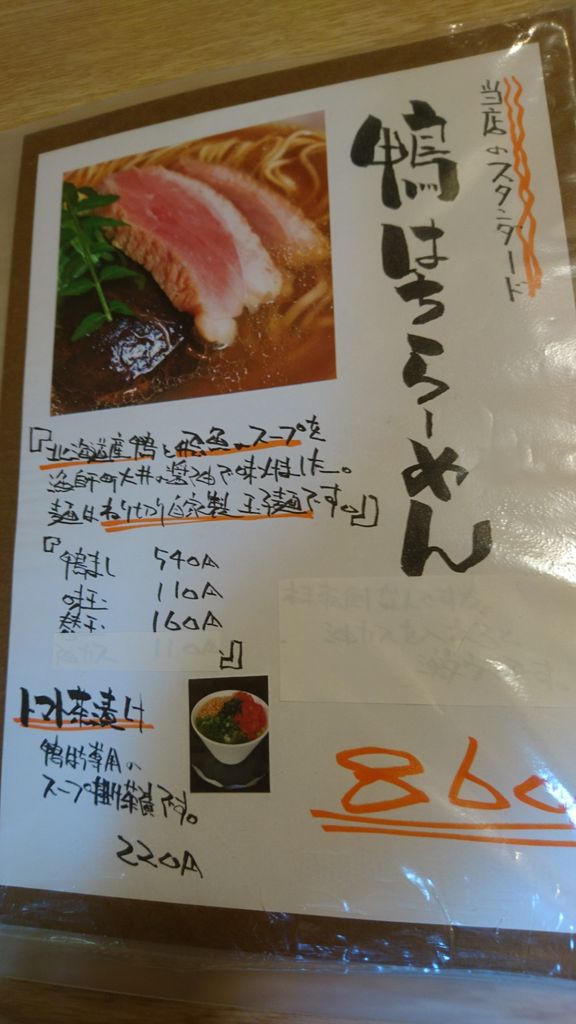 当店のスタンダード
鴨はちらーめん
『北海道産鴨と飛魚のスープを
湯浅町大井の醤油で味付けました。
麺はねり切り自家製玉子麺です。』
『鴨まし 540円
味玉 110円
替玉 160円
』
トマト茶漬け
鴨はち専用の
スープ掛け茶漬です。
220円
860